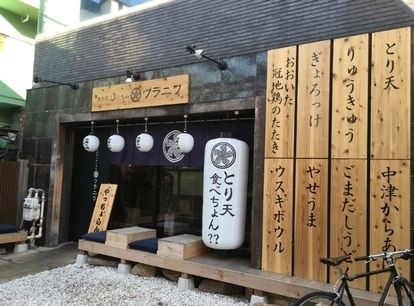 ウラニワ
とり天
食べちょん??
やっちょらん
とり天
りゅうきゅう
ぎょろっけ
おおいた
冠地鶏のたたき
中津からあ
ごまだしう
やせうま
ウスキボウル